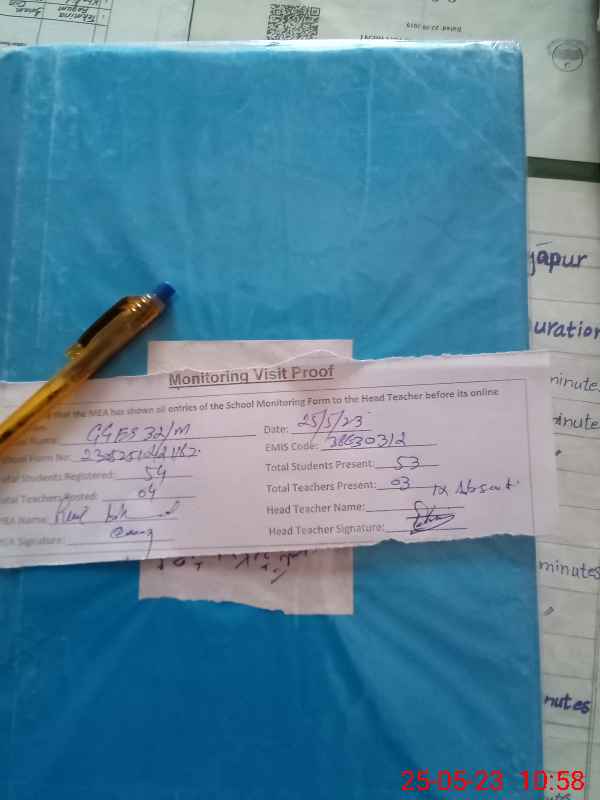 Dated 22.09.2015
Tehmina
Begum
japur
uration
minute
minute
Monitoring Visit Proof
that the MEA has shown all entries of the School Monitoring Form to the Head Teacher before its online
Name: GGES 32/M Date: 25/5/23
School Form No: EMIS Code: 38630312
Total Students Registered: 54 Total Students Present: 53
Total Teachers Posted: 04 Total Teachers Present: 03 1x Absent.
MEA Name: Head Teacher Name:
MEA Signature: Head Teacher Signature:
minutes
"
nutes
25-05-23 10:58